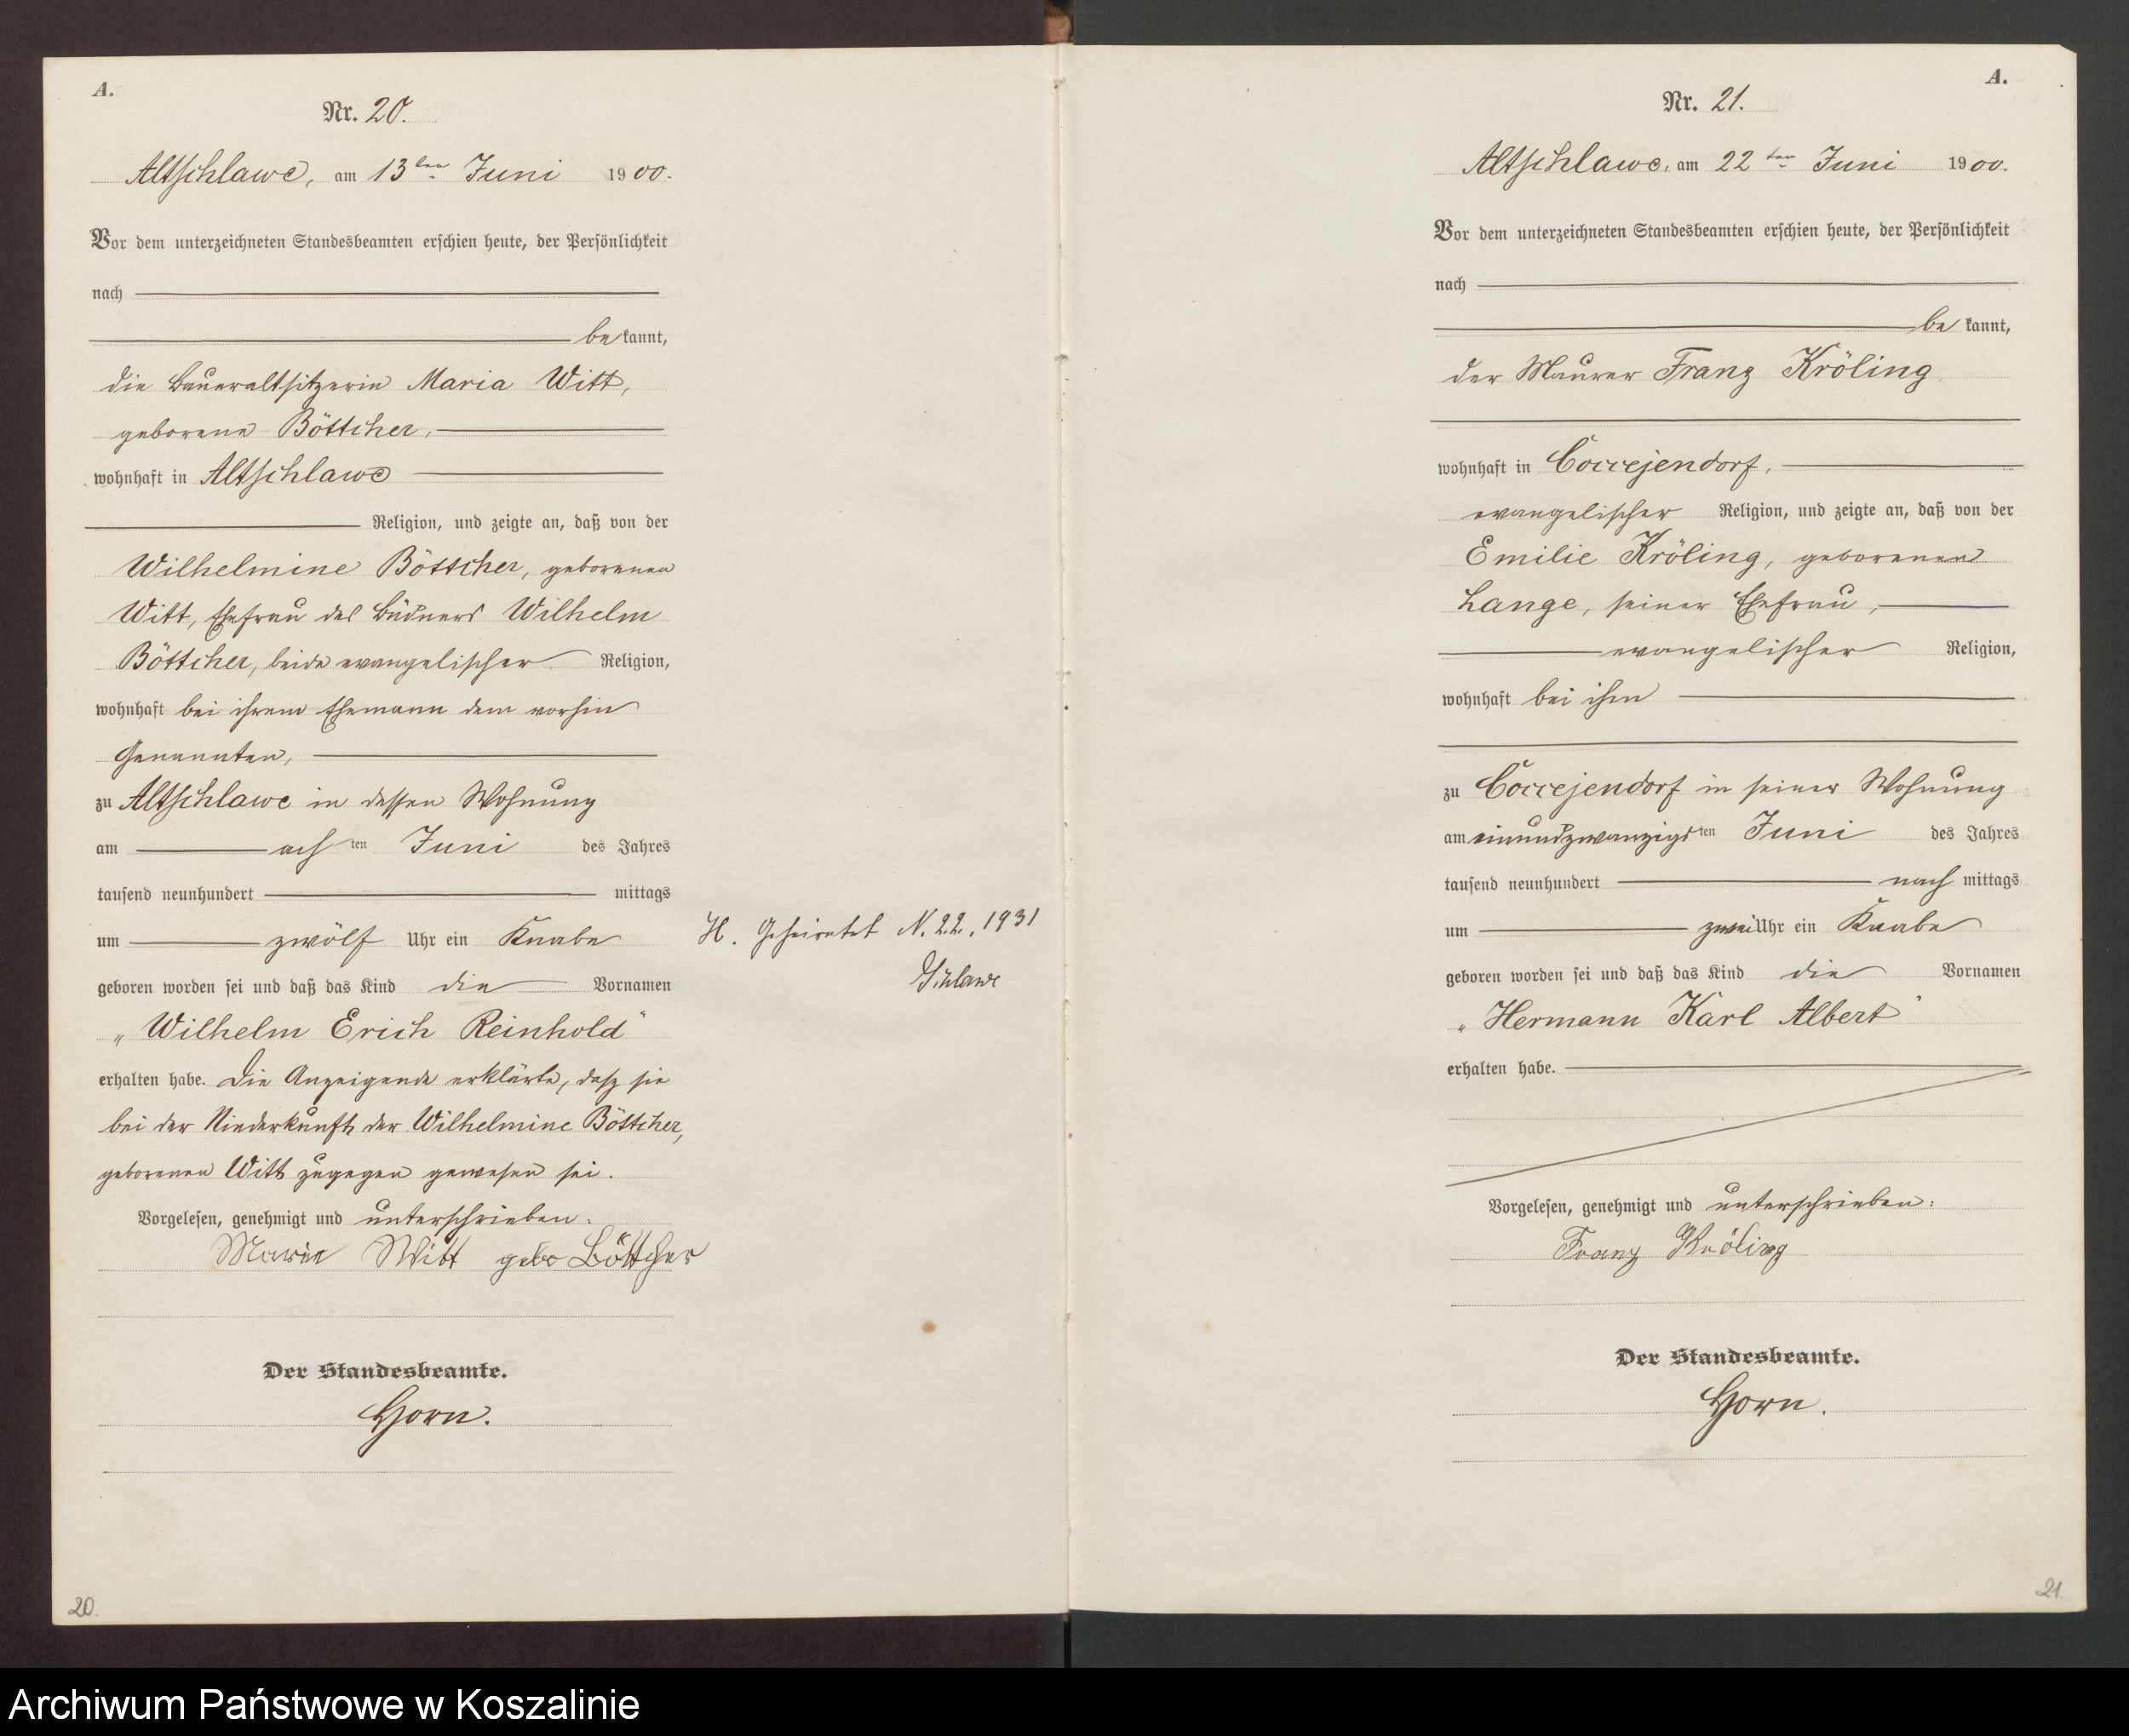 A.
Nr. 20.
Altschlawe, am 13ten Juni 1900.
Vor dem unterzeichneten Standesbeamten erschien heute, der Persönlichkeit
nach
bekannt,
die Baueraltsitzerin Maria Witt,
geborene Böttcher,
wohnhaft in Altschlawe
Religion, und zeigte an, daß von der
Wilhelmine Böttcher, geborenen
Witt, Ehefrau des Büdners Wilhelm
Böttcher, beide evangelischer Religion,
wohnhaft bei ihrem Ehemann dem vorhin
Genannten,
zu Altschlawe in dessen Wohnung
am achten Juni des Jahres
tausend neunhundert mittags
um zwölf Uhr ein Knabe
geboren worden sei und daß das Kind die Vornamen
„Wilhelm Erich Reinhold“
erhalten habe. Die Anzeigende erklärte, dasz sie
bei der Niederkunft der Wilhelmine Böttcher,
geborenen Witt zugegen gewesen sei.
Vorgelesen, genehmigt und unterschrieben.
Maria Witt geb Böttcher
Der Standesbeamte.
Horn.
20.
H. Geheiratet N. 22., 1931
Schlawe
A.
Nr. 21.
Altschlawe, am 22ten Juni 1900.
Vor dem unterzeichneten Standesbeamten erschien heute, der Persönlichkeit
nach
bekannt,
der Maurer Franz Kröling
wohnhaft in Coccejendorf,
evangelischer Religion, und zeigte an, daß von der
Emilie Kröling, geborenen
Lange, seiner Ehefrau,
evangelischer Religion,
wohnhaft bei ihm
zu Coccejendorf in seiner Wohnung
am einundzwanzigsten Juni des Jahres
tausend neunhundert nachmittags
um zwei Uhr ein Knabe
geboren worden sei und daß das Kind die Vornamen
„Hermann Karl Albert“
erhalten habe.
Vorgelesen, genehmigt und unterschrieben:
Franz Kröling
Der Standesbeamte.
Horn.
21
Archiwum Państwowe w Koszalinie